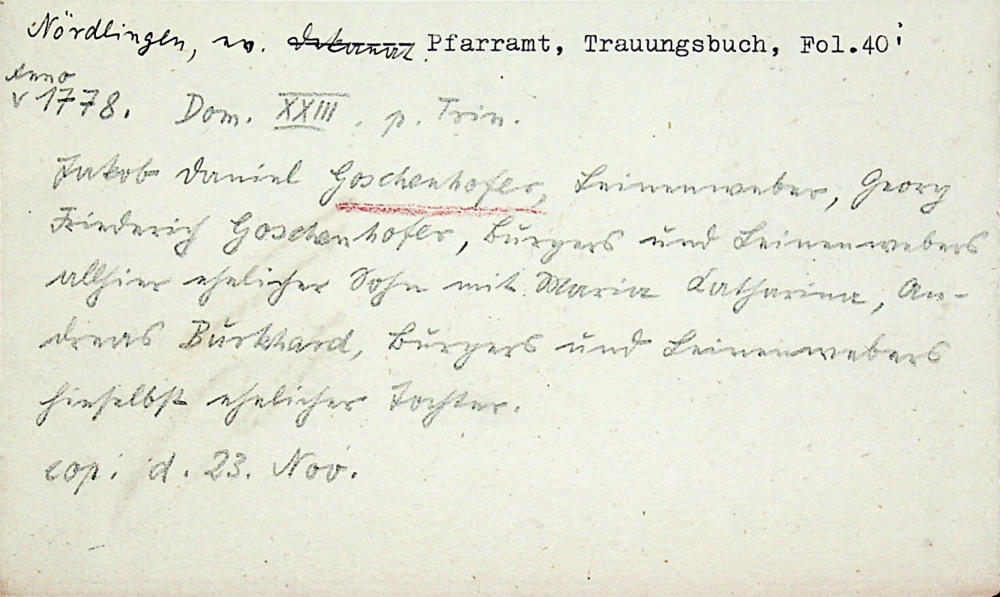 Nördlingen, ev. Dekanat Pfarramt, Trauungsbuch, Fol.40'
Anno
v 1778. Dom. XXIII. p. Trin.
Jakob Daniel Goschenhofer, Leinenweber, Georg
Friederich Goschenhofer, Bürgers und Leinenwebers
allhier ehelicher Sohn mit Maria Catharina, An-
dreas Burkhard, Bürgers und Leinenwebers
hieselbst ehelicher Tochter.
cop. d. 23. Nov.